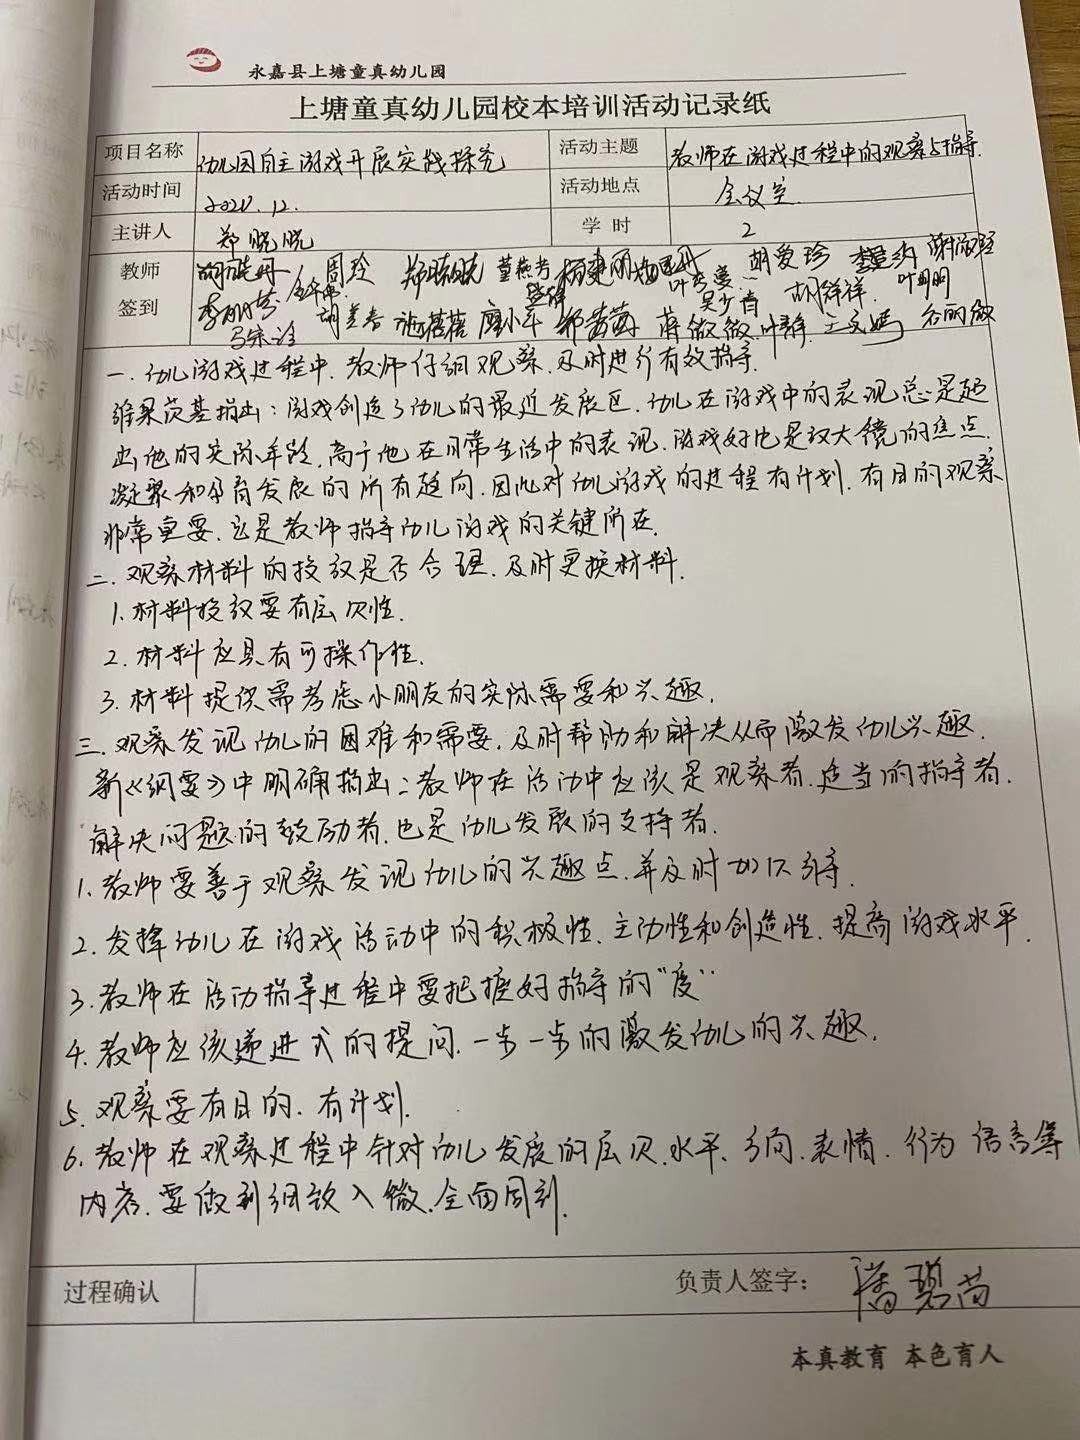 永嘉县上塘童真幼儿园
上塘童真幼儿园校本培训活动记录纸
项目名称 幼儿园自主游戏开展实践探究 活动主题 教师在游戏过程中的观察与指导.
活动时间 2020.12. 活动地点 会议室.
主讲人 郑晓晓 学 时 2
教师 周玲 郑晓晓 董燕芳 杨建丽 胡爱珍
签到 吴少青 胡祥祥 叶明明
胡美春 施蓓蓓 廖小平 蒋微微 叶静 王文嫣 谷丽微
一. 幼儿游戏过程中. 教师仔细观察. 及时进行有效指导.
维果茨基指出：游戏创造了幼儿的最近发展区. 幼儿在游戏中的表现总是超
出他的实际年龄. 高于他在日常生活中的表现. 游戏好比是放大镜的焦点.
凝聚和孕育发展的所有趋向. 因此对幼儿游戏的过程有计划. 有目的观察
非常重要. 它是教师指导幼儿游戏的关键所在.
二. 观察材料的投放是否合理. 及时更换材料.
1. 材料投放要有层次性.
2. 材料应具有可操作性.
3. 材料提供需考虑小朋友的实际需要和兴趣.
三. 观察发现幼儿的困难和需要. 及时帮助和解决从而激发幼儿兴趣.
新《纲要》中明确指出：教师在活动中应该是观察者. 适当的指导者.
解决问题的鼓励者. 也是幼儿发展的支持者.
1. 教师要善于观察发现幼儿的兴趣点. 并及时加以引导.
2. 发挥幼儿在游戏活动中的积极性. 主动性和创造性. 提高游戏水平.
3. 教师在活动指导过程中要把握好指导的“度”
4. 教师应该递进式的提问. 一步一步的激发幼儿的兴趣.
5. 观察要有目的. 有计划.
6. 教师在观察过程中针对幼儿发展的层次. 水平. 方向. 表情. 行为 语言等
内容. 要做到细致入微. 全面周到.
过程确认 负责人签字： 潘碧尚
本真教育 本色育人